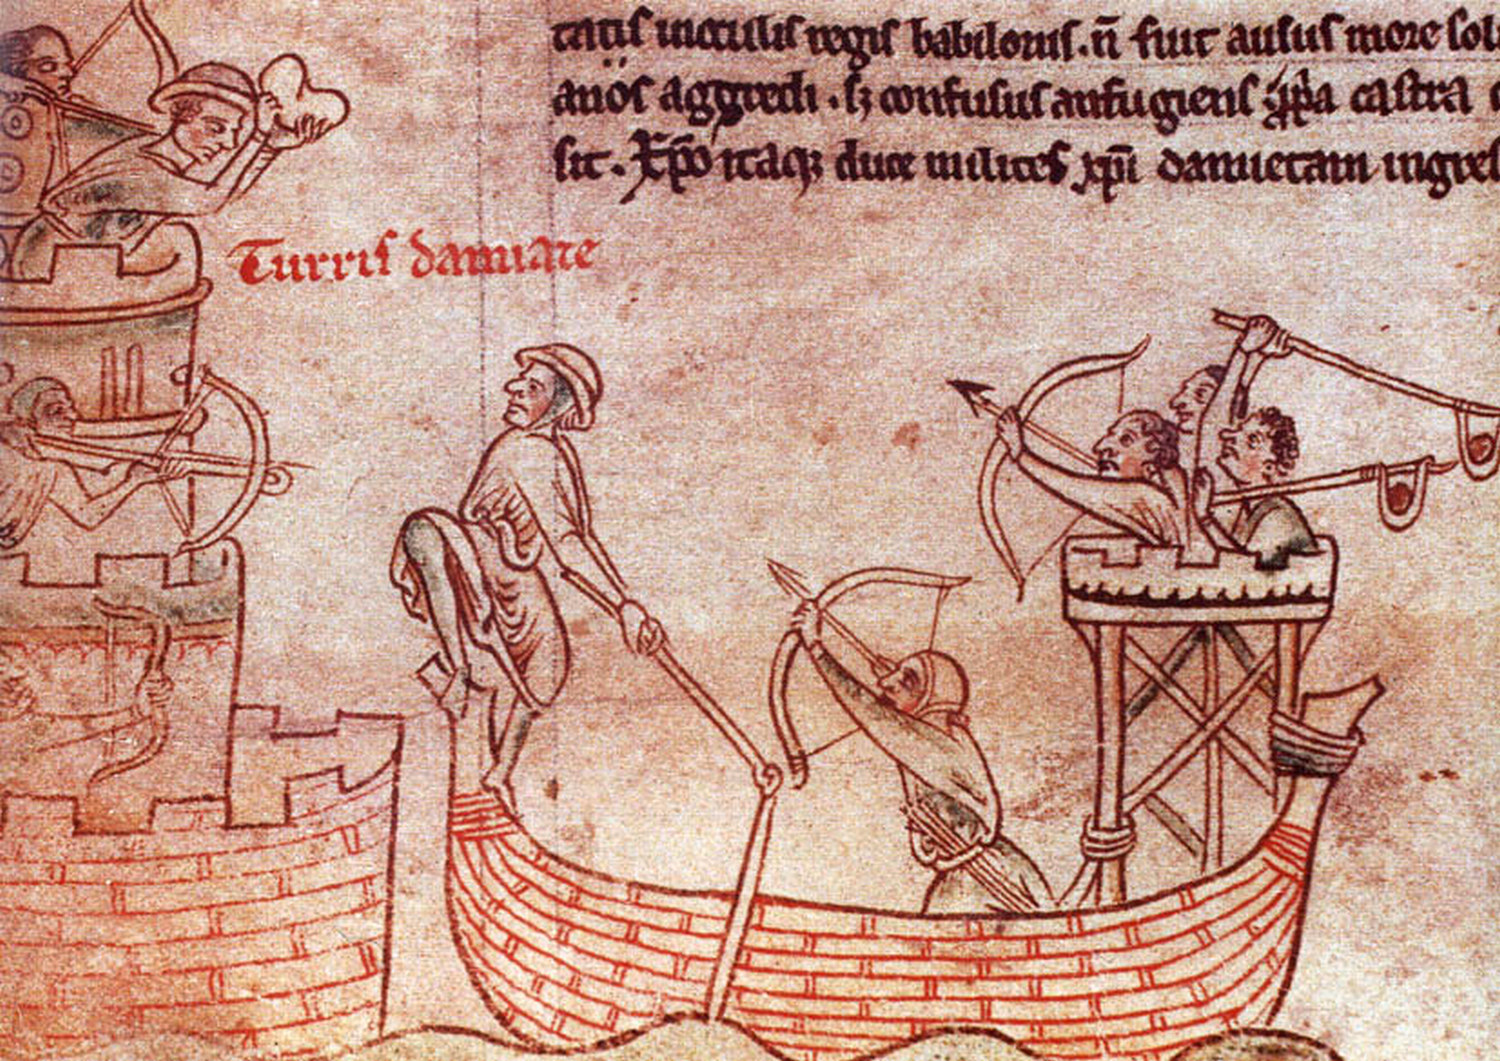 tatis inculis regis babilonis. n̄ fuit ausus more sol
anos aggredi. sꝫ confusus aufugiens ꝓp̄a castra
sit. Xp̄o itaqꝫ duce milites xp̄i damietam ingres
Turris damiate